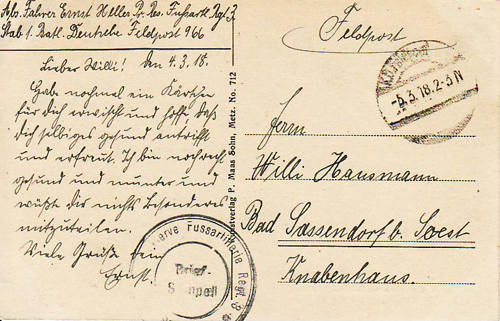 Abs. Fahrer Ernst Heller Pr. Res. Fußartl. Rgt. 3
Stab 1. Batl. Deutsche Feldpost 966
Lieber Willi! den 4.3.18.
Habe nochmal ein Kärtchen
für dich erwischt und hoffe, daß
dich selbiges gesund antrifft
und erfreut. Ich bin noch recht
gesund und munter und
wüßte dir nichts Besonderes
mitzuteilen.
Viele Grüße dein
Ernst.
Reserve Fussartillerie Regt. 3
Brief-
Stempel
Kunstverlag P. Maas Sohn, Metz. No. 712
Feldpost
K.D. Feldpost
3.18.2-3N
Herrn
Willi Hausmann
Bad Sassendorf b. Soest
Knabenhaus.